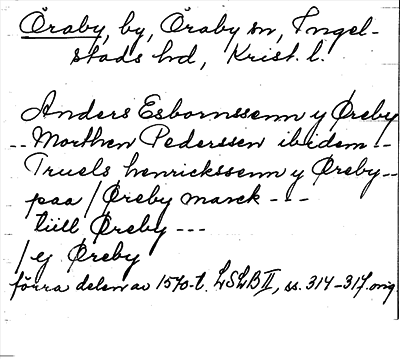 Öraby, by, Öraby sn, Ingel-
stads hd, Krist. l.
Anders Esbornssenn y Øreby
-- Morthen Pederssen ibidem --
Truels henrickssenn y Øreby --
paa / Øreby marck - - -
tiill Øreby - - -
/ ej Øreby
förra delen av 1570-t. LSLB II, ss. 314-317. orig.